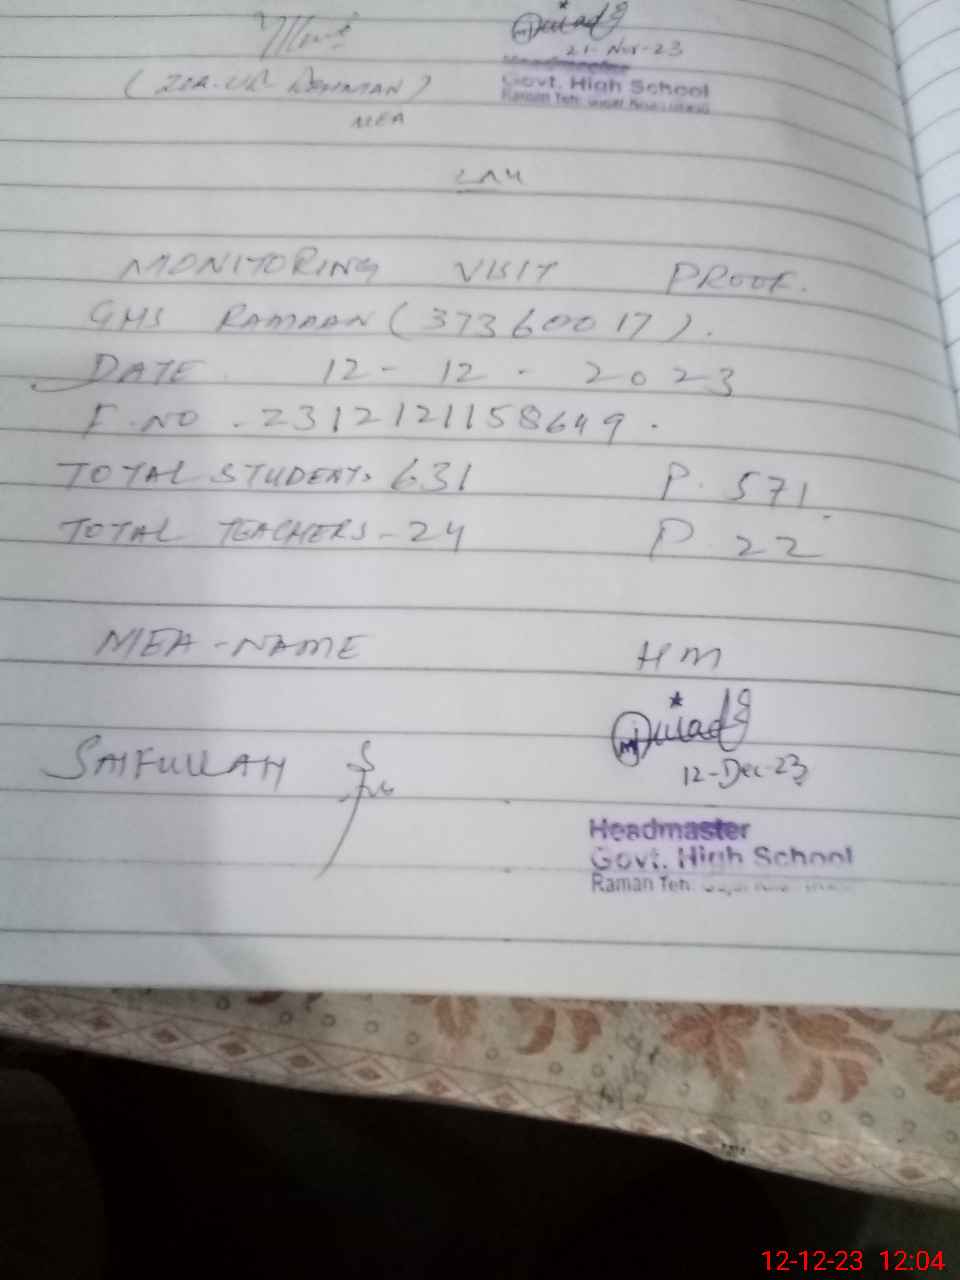 21-Nov-23
Headmaster
Govt. High School
(ZIA-UR REHMAN)
MEA
MONITORING VISIT PROOF.
GHS RAMAAN (37360017).
DATE 12-12-2023
F.NO-2312121158649.
TOTAL STUDENTS 631 P. 571
TOTAL TEACHERS-24 P 22
MEA-NAME HM
SAIFULLAH
12-Dec-23
Headmaster
Govt. High School
Raman Teh:
12-12-23 12:04